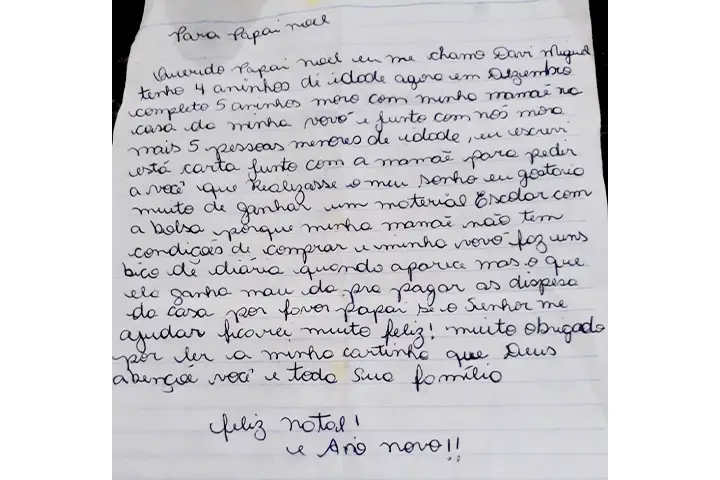 Para Papai noel
Querido Papai noel eu me chamo Davi Miguel
tenho 4 aninhos de idade agora em Dezembro
completo 5 aninhos moro com minha mamãe na
casa da minha vovó e junto com nós mora
mais 5 pessoas menores de idade, eu escrevi
está carta junto com a mamãe para pedir
a você que Realizasse o meu sonho eu gostaria
muito de ganhar um material Escolar com
a bolsa porque minha mamãe não tem
condição de comprar e minha vovó faz uns
bico de diária quando aparice mas o que
ela ganha mau da pra pagar as dispesa
da casa por favor papai se o Senhor me
ajudar ficarei muito feliz! muito obrigado
por ler a minha cartinha que Deus
abençõe você e toda Sua família
feliz natal!
e Ano novo!!